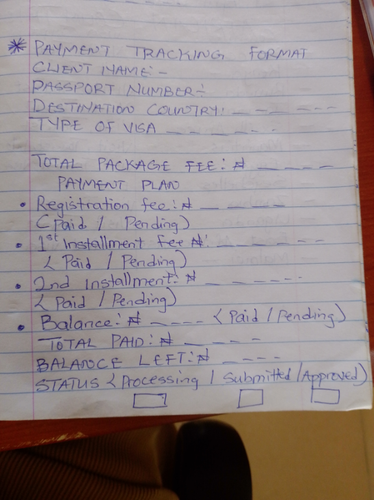 * PAYMENT TRACKING FORMAT
CLIENT NAME:-
PASSPORT NUMBER:-
DESTINATION COUNTRY: - - - - - -
TYPE OF VISA - - - - - -
TOTAL PACKAGE FEE: ₦ - - - - -
PAYMENT PLAN
• Registration fee: ₦ - - - - -
(Paid / Pending)
• 1st Installment Fee ₦: - - - - - -
< Paid / Pending)
• 2nd Installment: ₦ - - - - - -
< Paid / Pending)
• Balance: ₦ - - - - < Paid / Pending)
TOTAL PAID: ₦ - - - - -
BALANCE LEFT: ₦ - - - -
STATUS < Processing / Submitted / Approved)